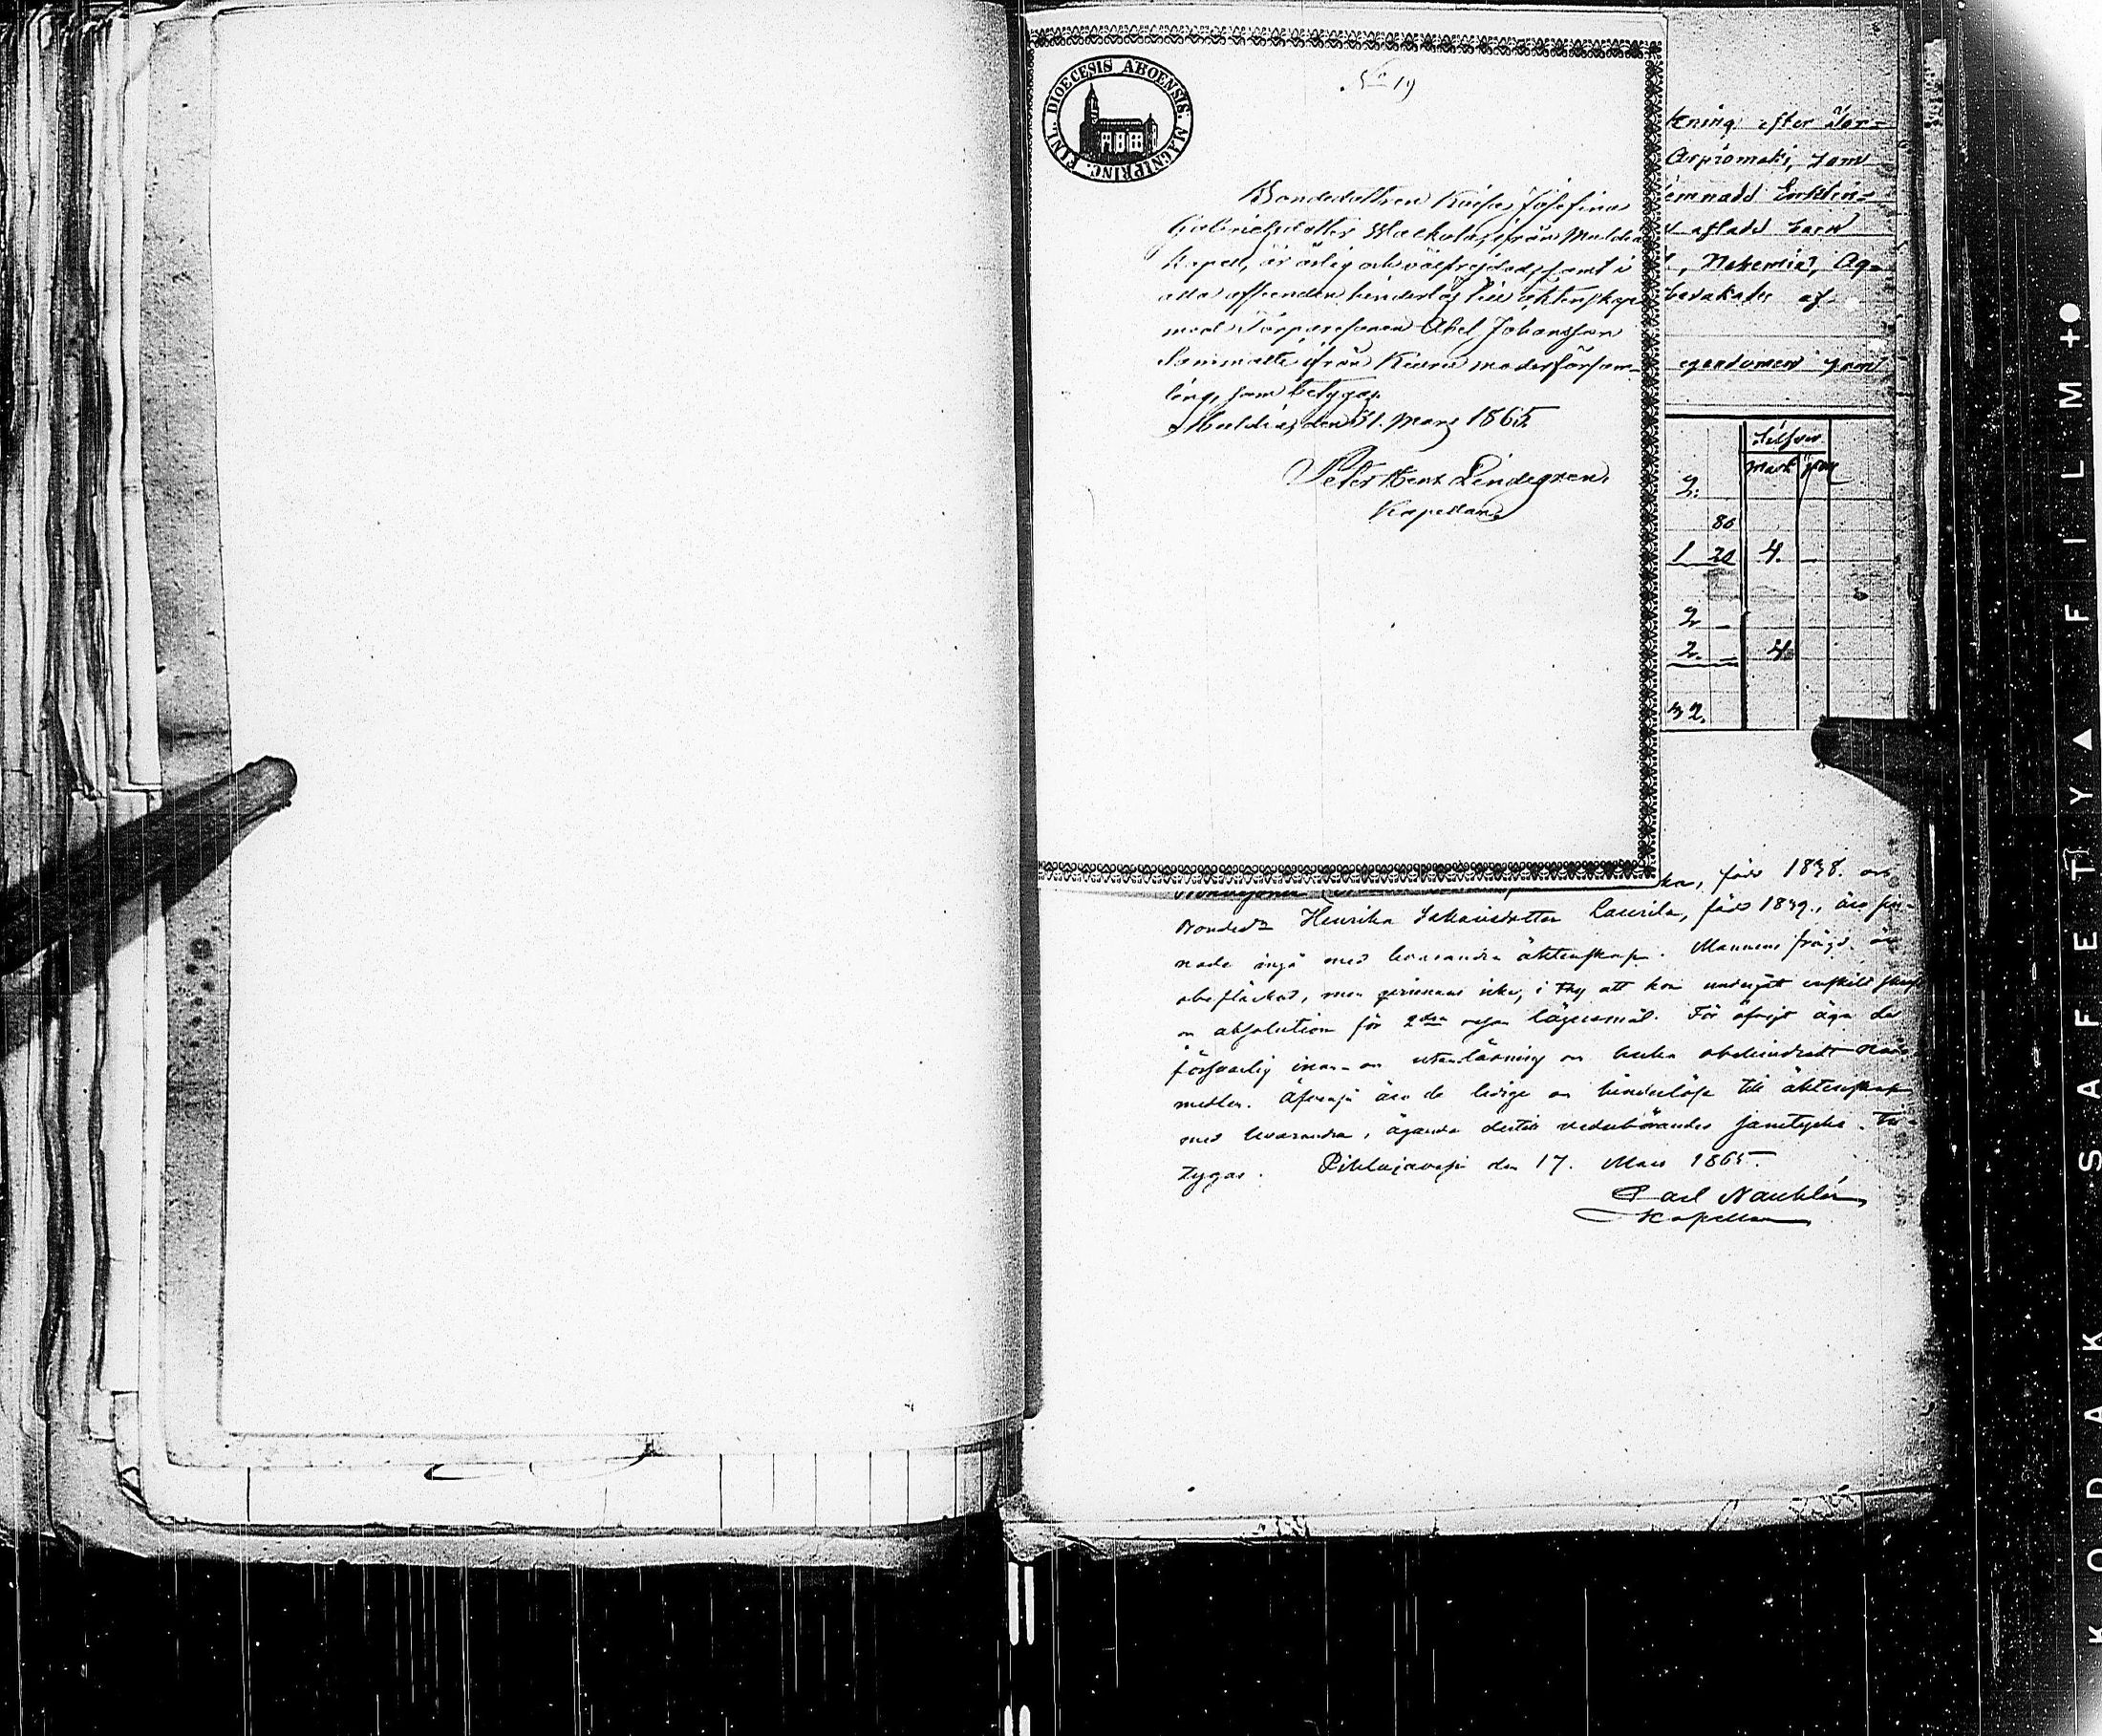 No 19
DIOECESIS ABOENSIS. MAGNI PRINC. FINL.
Bondedottren Kaisa Josefina
Gabrielsdotter ifrån Multia
Kapell, är ärlig och välfrejdad, samt i
alla afseenden hinderlös till äktenskap
med Torparesonen Abel Johansson
ifrån Keuru moderförsam-
ling, som betygar,
Multia, den 31. Mars 1865.
Peter Henr Lindegren.
Kapellan.
kning efter Tor-
som
emnadt
aflade barn
Nehemia, Ag-
bevakades af
egendomen som
Silfver
mark
2.
80
1 20 4. -
2 -
2. - 4
32.
ka, född 1838. och
Henrika Laurila, född 1839., äro sin-
nade ingå med hvarandra äktenskap. Mannens frägd är
obefläckad, men qvinnans icke, i thy att hon undergått enskild skrift
o absolution för 2dra resan lägersmål. För öfrigt äga de
försvarlig innan- o utanläsning o bruka obehindradt nåde-
medlen. Äfvenså äro de ledige o hinderlöse till äktenskap
med hvarandra, ägande dertill vederbörandes samtycke. Be-
tygar. Pihlajavesi den 17. Mars 1865.
Carl
Kapellan
KODAK SAFETY FILM